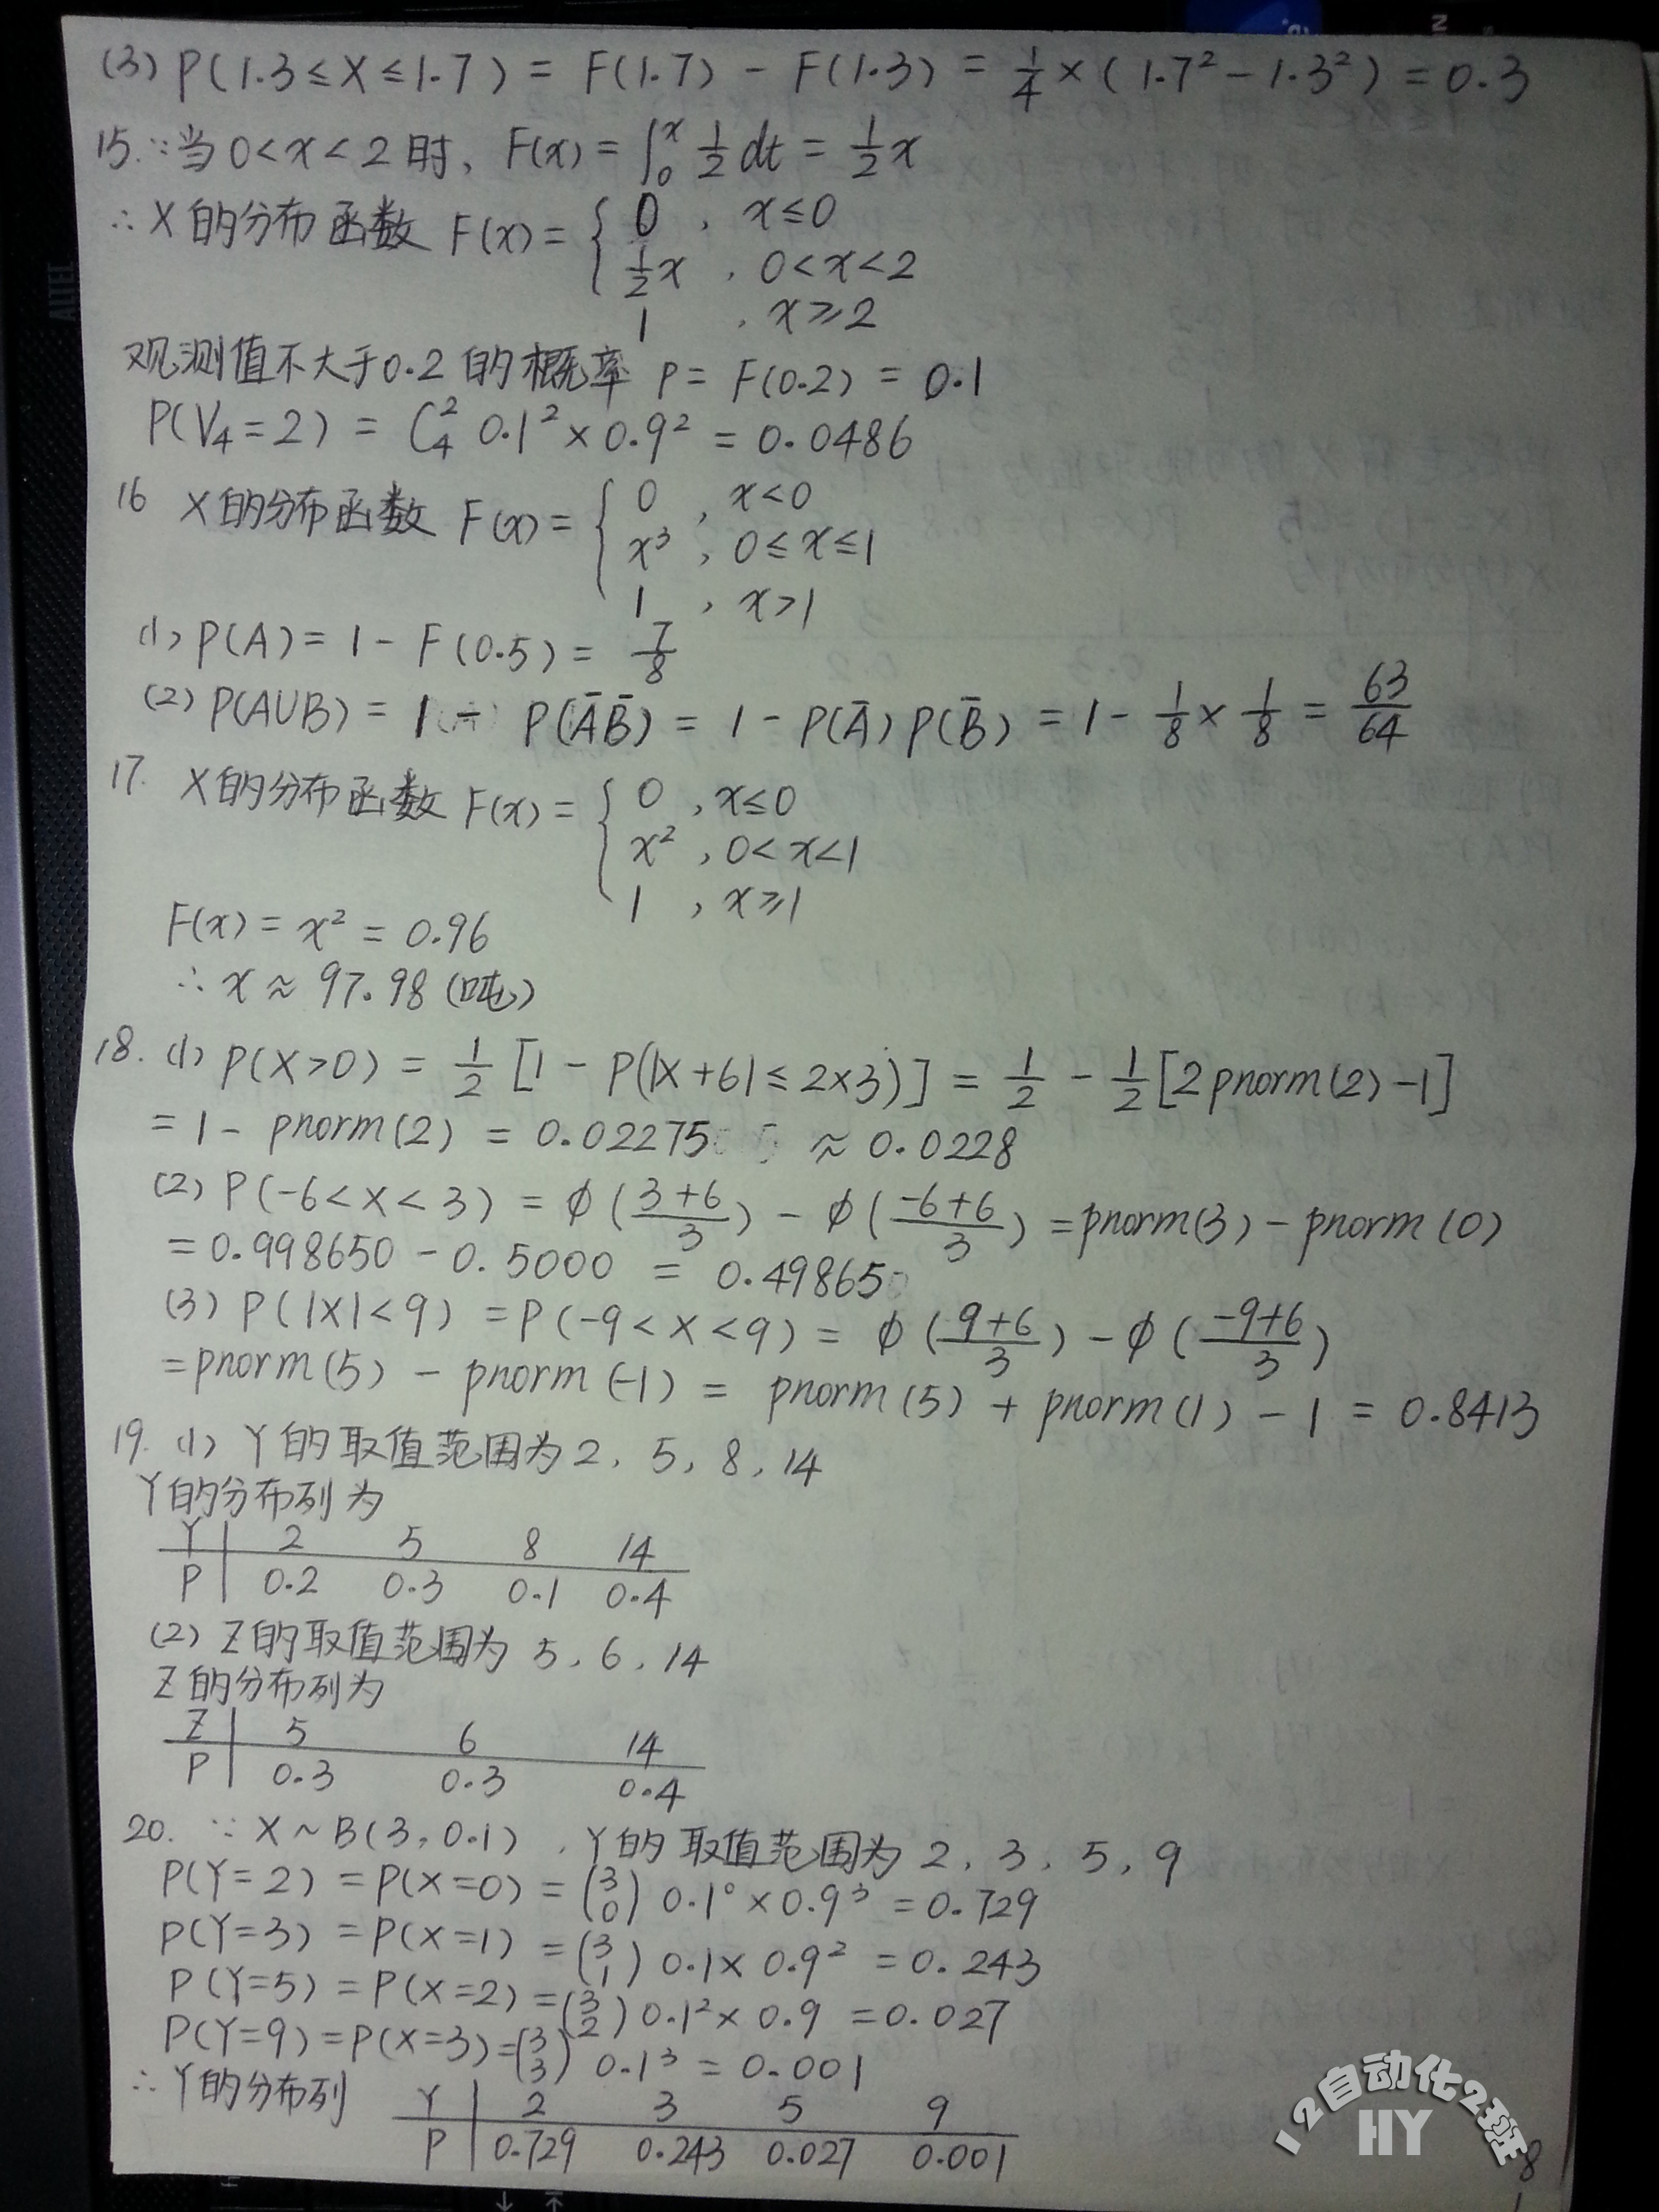 (3) P(1.3≤X≤1.7) = F(1.7) - F(1.3) = 1/4 × (1.7² - 1.3²) = 0.3
15. ∵当 0<x<2 时, F(x) = ∫₀ˣ 1/2 dt = 1/2 x
∴ X 的分布函数 F(x) = { 0 , x≤0
1/2 x , 0<x<2
1 , x≥2
观测值不大于0.2 的概率 P = F(0.2) = 0.1
P(V₄=2) = C₄² 0.1² × 0.9² = 0.0486
16 X的分布函数 F(x) = { 0 , x<0
x³ , 0≤x≤1
1 , x>1
(1) P(A) = 1 - F(0.5) = 7/8
(2) P(A∪B) = 1 - P(ĀB̄) = 1 - P(Ā)P(B̄) = 1 - 1/8 × 1/8 = 63/64
17. X的分布函数 F(x) = { 0 , x≤0
x² , 0<x<1
1 , x≥1
F(x) = x² = 0.96
∴ x ≈ 97.98 (吨)
18. (1) P(X>0) = 1/2 [1 - P(|X+6|≤2×3)] = 1/2 - 1/2 [2pnorm(2) - 1]
= 1 - pnorm(2) = 0.02275 ≈ 0.0228
(2) P(-6<X<3) = ϕ((3+6)/3) - ϕ((-6+6)/3) = pnorm(3) - pnorm(0)
= 0.998650 - 0.5000 = 0.49865
(3) P(|X|<9) = P(-9<X<9) = ϕ((9+6)/3) - ϕ((-9+6)/3)
= pnorm(5) - pnorm(-1) = pnorm(5) + pnorm(1) - 1 = 0.8413
19. (1) Y 的取值范围为 2, 5, 8, 14
Y的分布列为
Y | 2 5 8 14
P | 0.2 0.3 0.1 0.4
(2) Z的取值范围为 5, 6, 14
Z的分布列为
Z | 5 6 14
P | 0.3 0.3 0.4
20. ∵ X~B(3, 0.1) , Y的取值范围为 2, 3, 5, 9
P(Y=2) = P(X=0) = (3 0) 0.1⁰ × 0.9³ = 0.729
P(Y=3) = P(X=1) = (3 1) 0.1 × 0.9² = 0.243
P(Y=5) = P(X=2) = (3 2) 0.1² × 0.9 = 0.027
P(Y=9) = P(X=3) = (3 3) 0.1³ = 0.001
∴ Y的分布列
Y | 2 3 5 9
P | 0.729 0.243 0.027 0.001
12自动化2班
HY